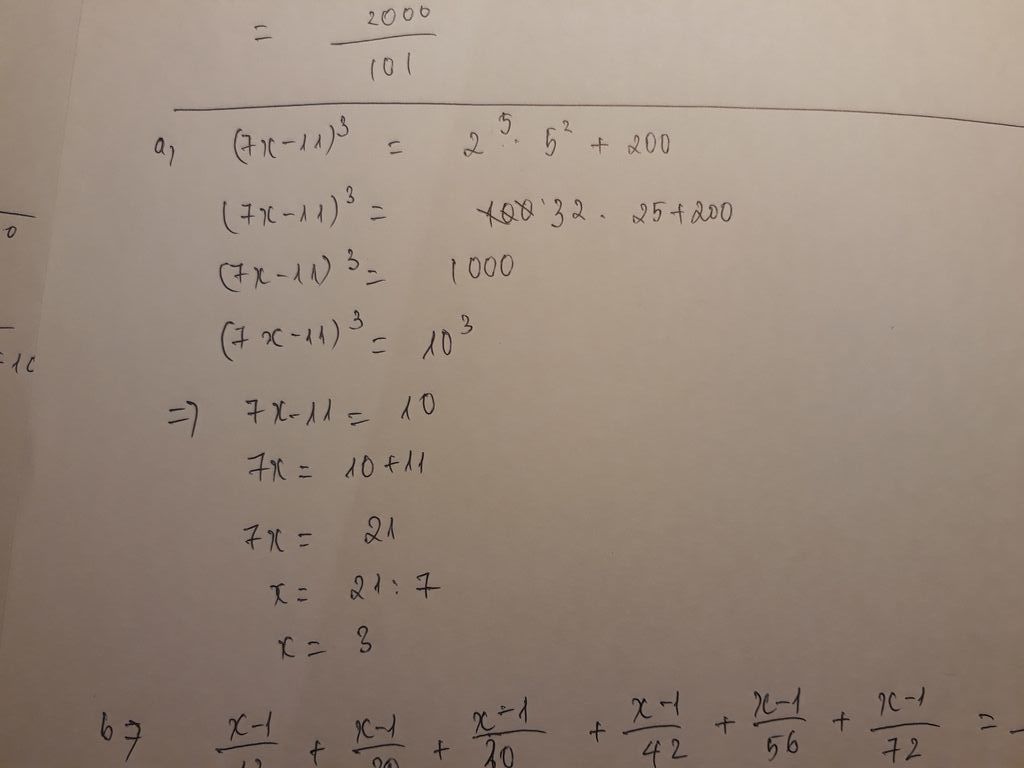 = 2000/101
a, (7x-11)³ = 2⁵. 5² + 200
(7x-11)³ = 32. 25+200
(7x-11)³ = 1000
(7x-11)³ = 10³
=> 7x-11 = 10
7x = 10+11
7x = 21
x = 21:7
x = 3
b, x-1/12 + x-1/20 + x-1/30 + x-1/42 + x-1/56 + x-1/72 =